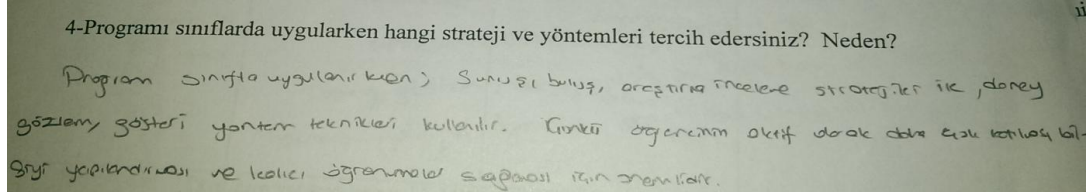 4-Programı sınıflarda uygularken hangi strateji ve yöntemleri tercih edersiniz? Neden?
Program sınıfta uygulanırken; Sunuş, buluş, araştırma inceleme stratejileri ile, deney
gözlem, gösteri yöntem teknikleri kullanılır. Çünkü öğrencinin aktif olarak daha çok katılıp bil-
giyi yapılandırması ve kalıcı öğrenmeler sağlaması için önemlidir.